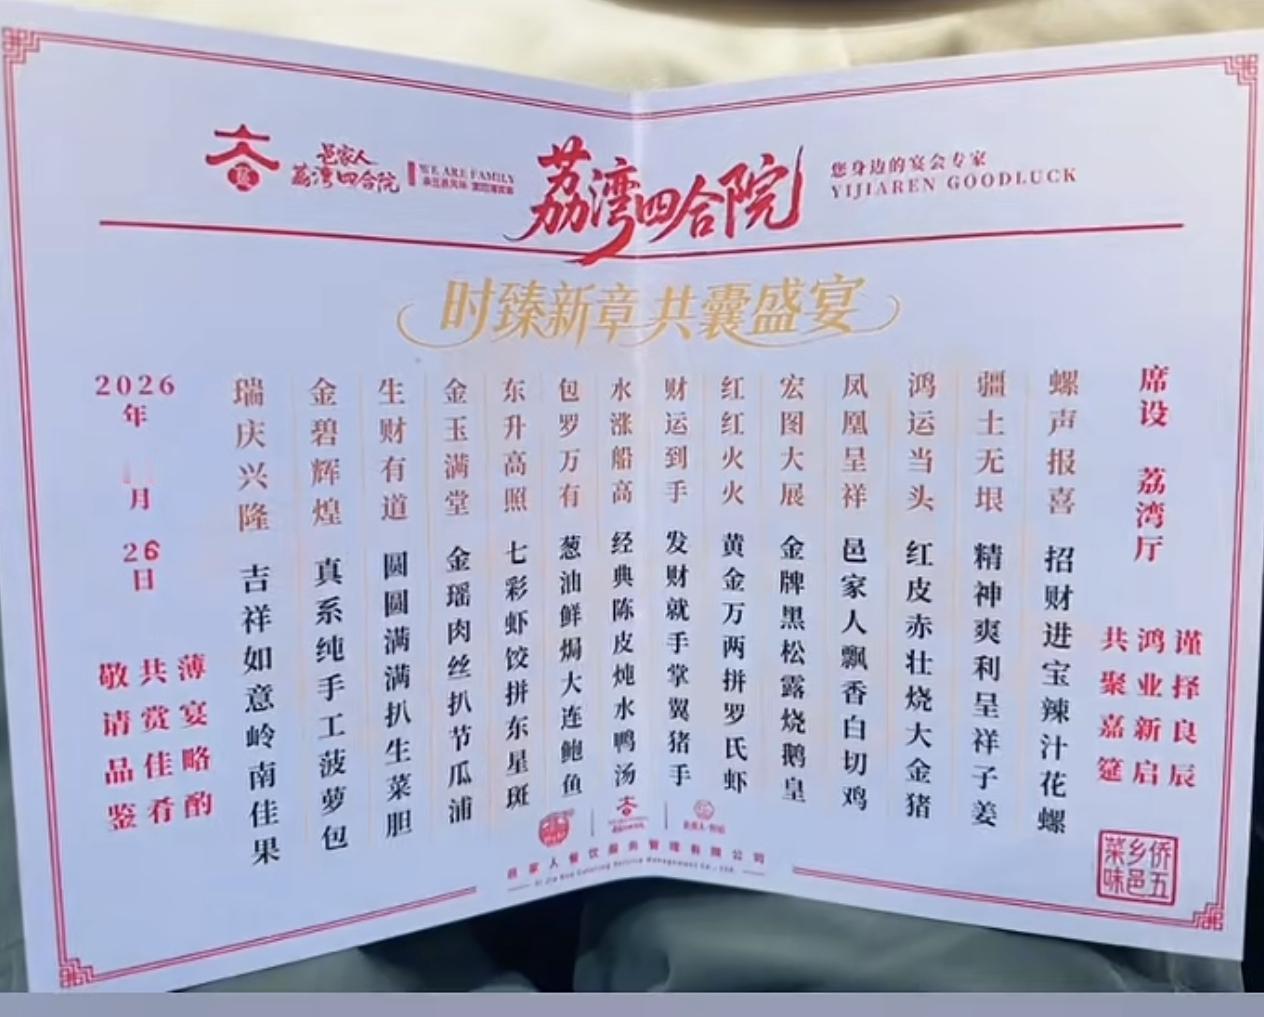 邑家人
荔湾四合院
WE ARE FAMILY
荔湾四合院
您身边的宴会专家
YIJIAREN GOODLUCK
时臻新章 共襄盛宴
席设 荔湾厅
谨择良辰
鸿业新启
共聚嘉筵
螺声报喜 招财进宝辣汁花螺
疆土无垠 精神爽利呈祥子姜
鸿运当头 红皮赤壮烧大金猪
凤凰呈祥 邑家人飘香白切鸡
宏图大展 金牌黑松露烧鹅皇
红红火火 黄金万两拼罗氏虾
财运到手 发财就手掌翼猪手
水涨船高 经典陈皮炖水鸭汤
包罗万有 葱油鲜焗大连鲍鱼
东升高照 七彩虾饺拼东星斑
金玉满堂 金瑶肉丝扒节瓜浦
生财有道 圆圆满满扒生菜胆
金碧辉煌 真系纯手工菠萝包
瑞庆兴隆 吉祥如意岭南佳果
2026年 月26日
薄宴略酌
共赏佳肴
敬请品鉴
侨五
乡邑
菜味
邑家人餐饮服务管理有限公司
Yi Jia Ren Catering Service Management Co., Ltd.